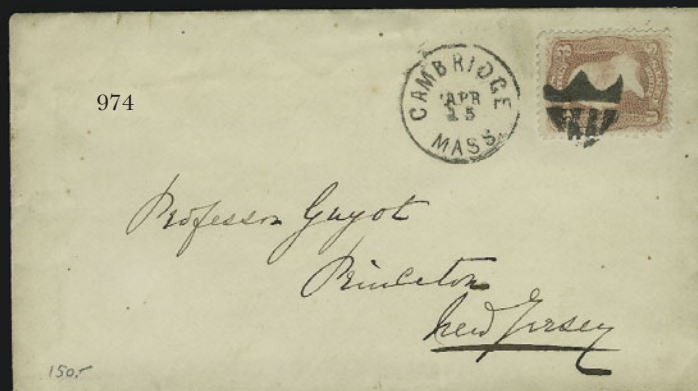 974
CAMBRIDGE
APR
15
MASS.
Professor Guyot
Princeton
New Jersey
150.-